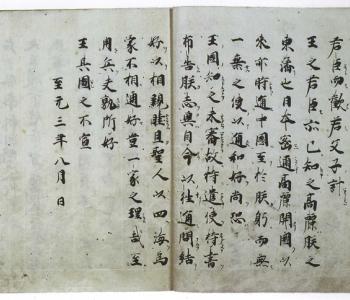 君臣歡若父子計
王之君臣亦已知之高麗朕之
東藩也日本密通高麗開國以
來亦時通中國至於朕躬而無
一乘之使以通和好尚恐
王國知之未審故特遣使持書
布告朕志冀自今以往通問結
好以相親睦且聖人以四海為
家不相通好豈一家之理哉至
用兵夫孰所好
王其圖之不宣
至元三年八月日